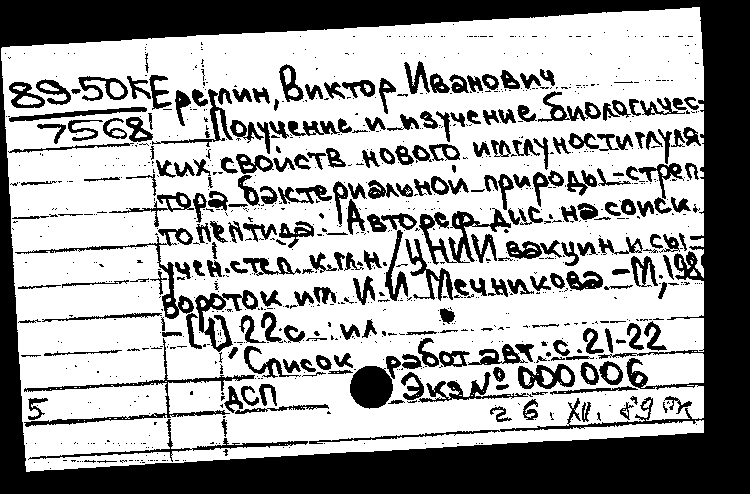 89-50к
7568
Еремин, Виктор Иванович
Получение и изучение биологичес-
ких свойств нового иммуностимуля-
тора бактериальной природы-стреп-
топептида: Автореф. дис. на соиск.
учен. степ. к.м.н. / ЦНИИ вакцин и сы-
вороток им. И.И. Мечникова. - М., 1989
- [4] 22 с.: ил.
Список работ авт.: с. 21-22
ДСП Экз № 000006
5
26. XII. 89